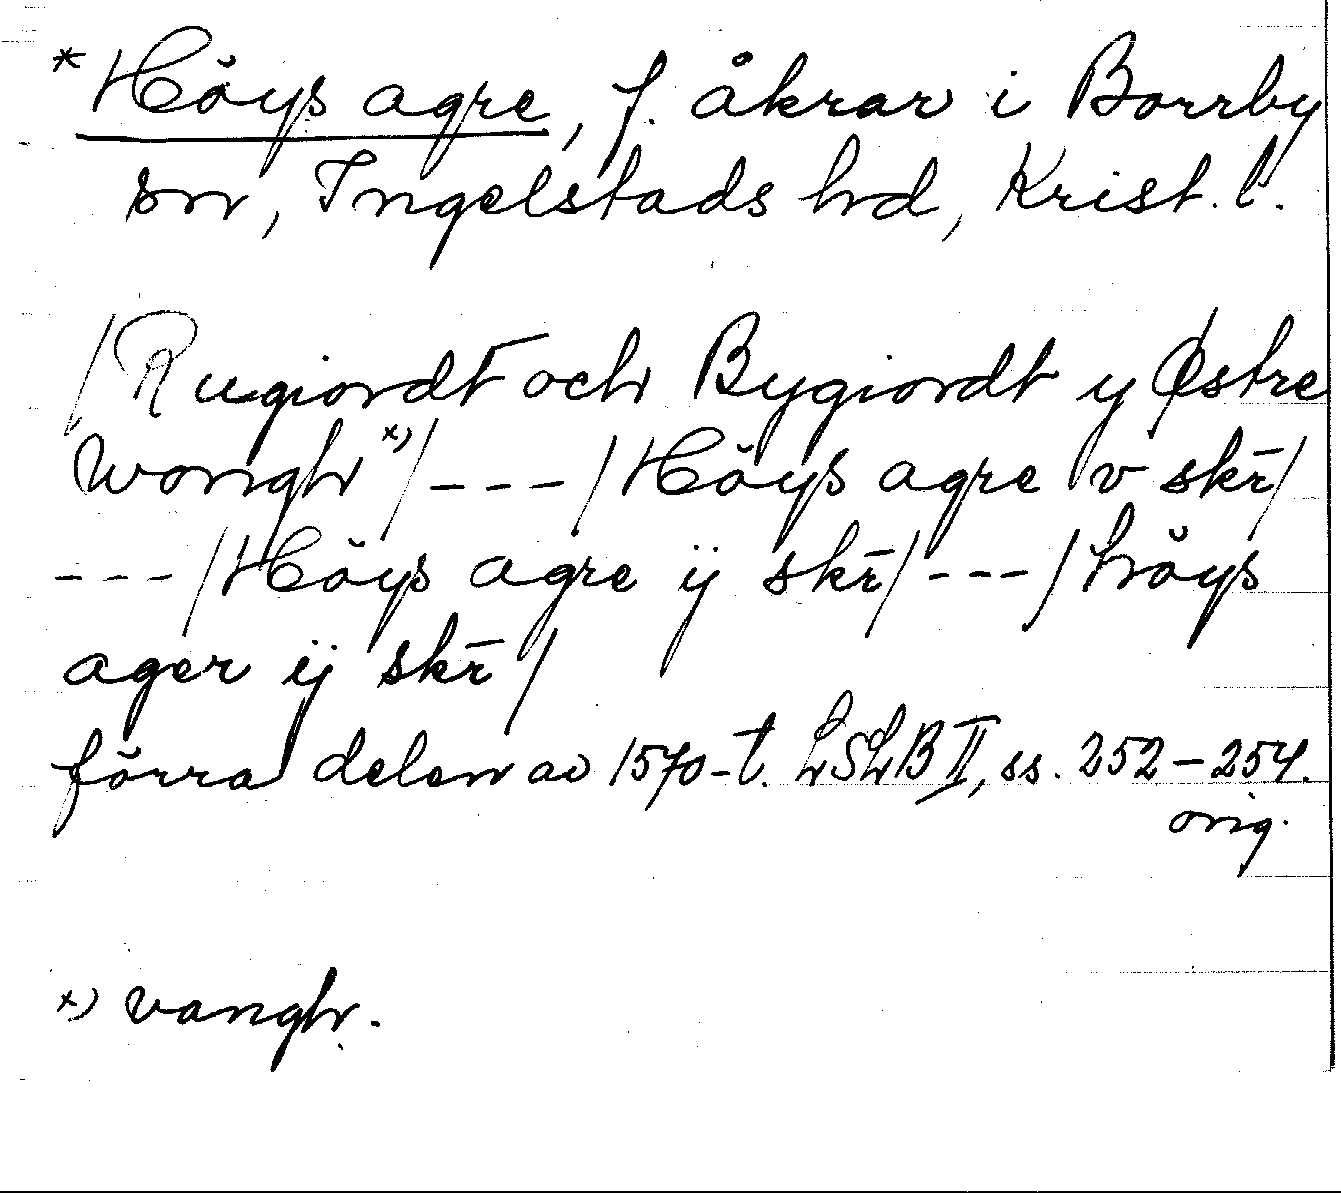 *Höys agre, f. åkrar i Borrby
sn, Ingelstads hd, Krist. l.
/Rugiordt och Bygiordt y Østre
Wongh x)/ --- /Höys agre v skr̄/
--- /Höys agre ij skr̄/ --- /höys
ager ij skr̄/
förra delen av 1570-t. LSLB II, ss. 252-254.
orig.
x) vangh.